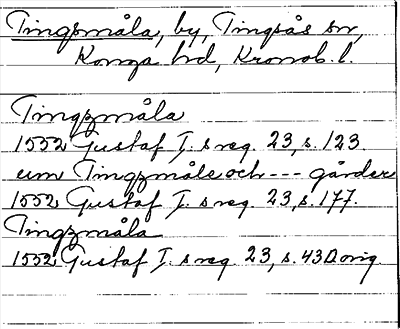 Tingsmåla, by, Tingsås sn,
Konga hd, Kronob. l.
Tingzmåla
1552 Gustaf I. s reg. 23, s. 123.
um Tingzmåle och --- gårder
1552 Gustaf I. s reg. 23, s. 177.
Tingzmåla
1552 Gustaf I. s reg. 23, s. 430 orig.